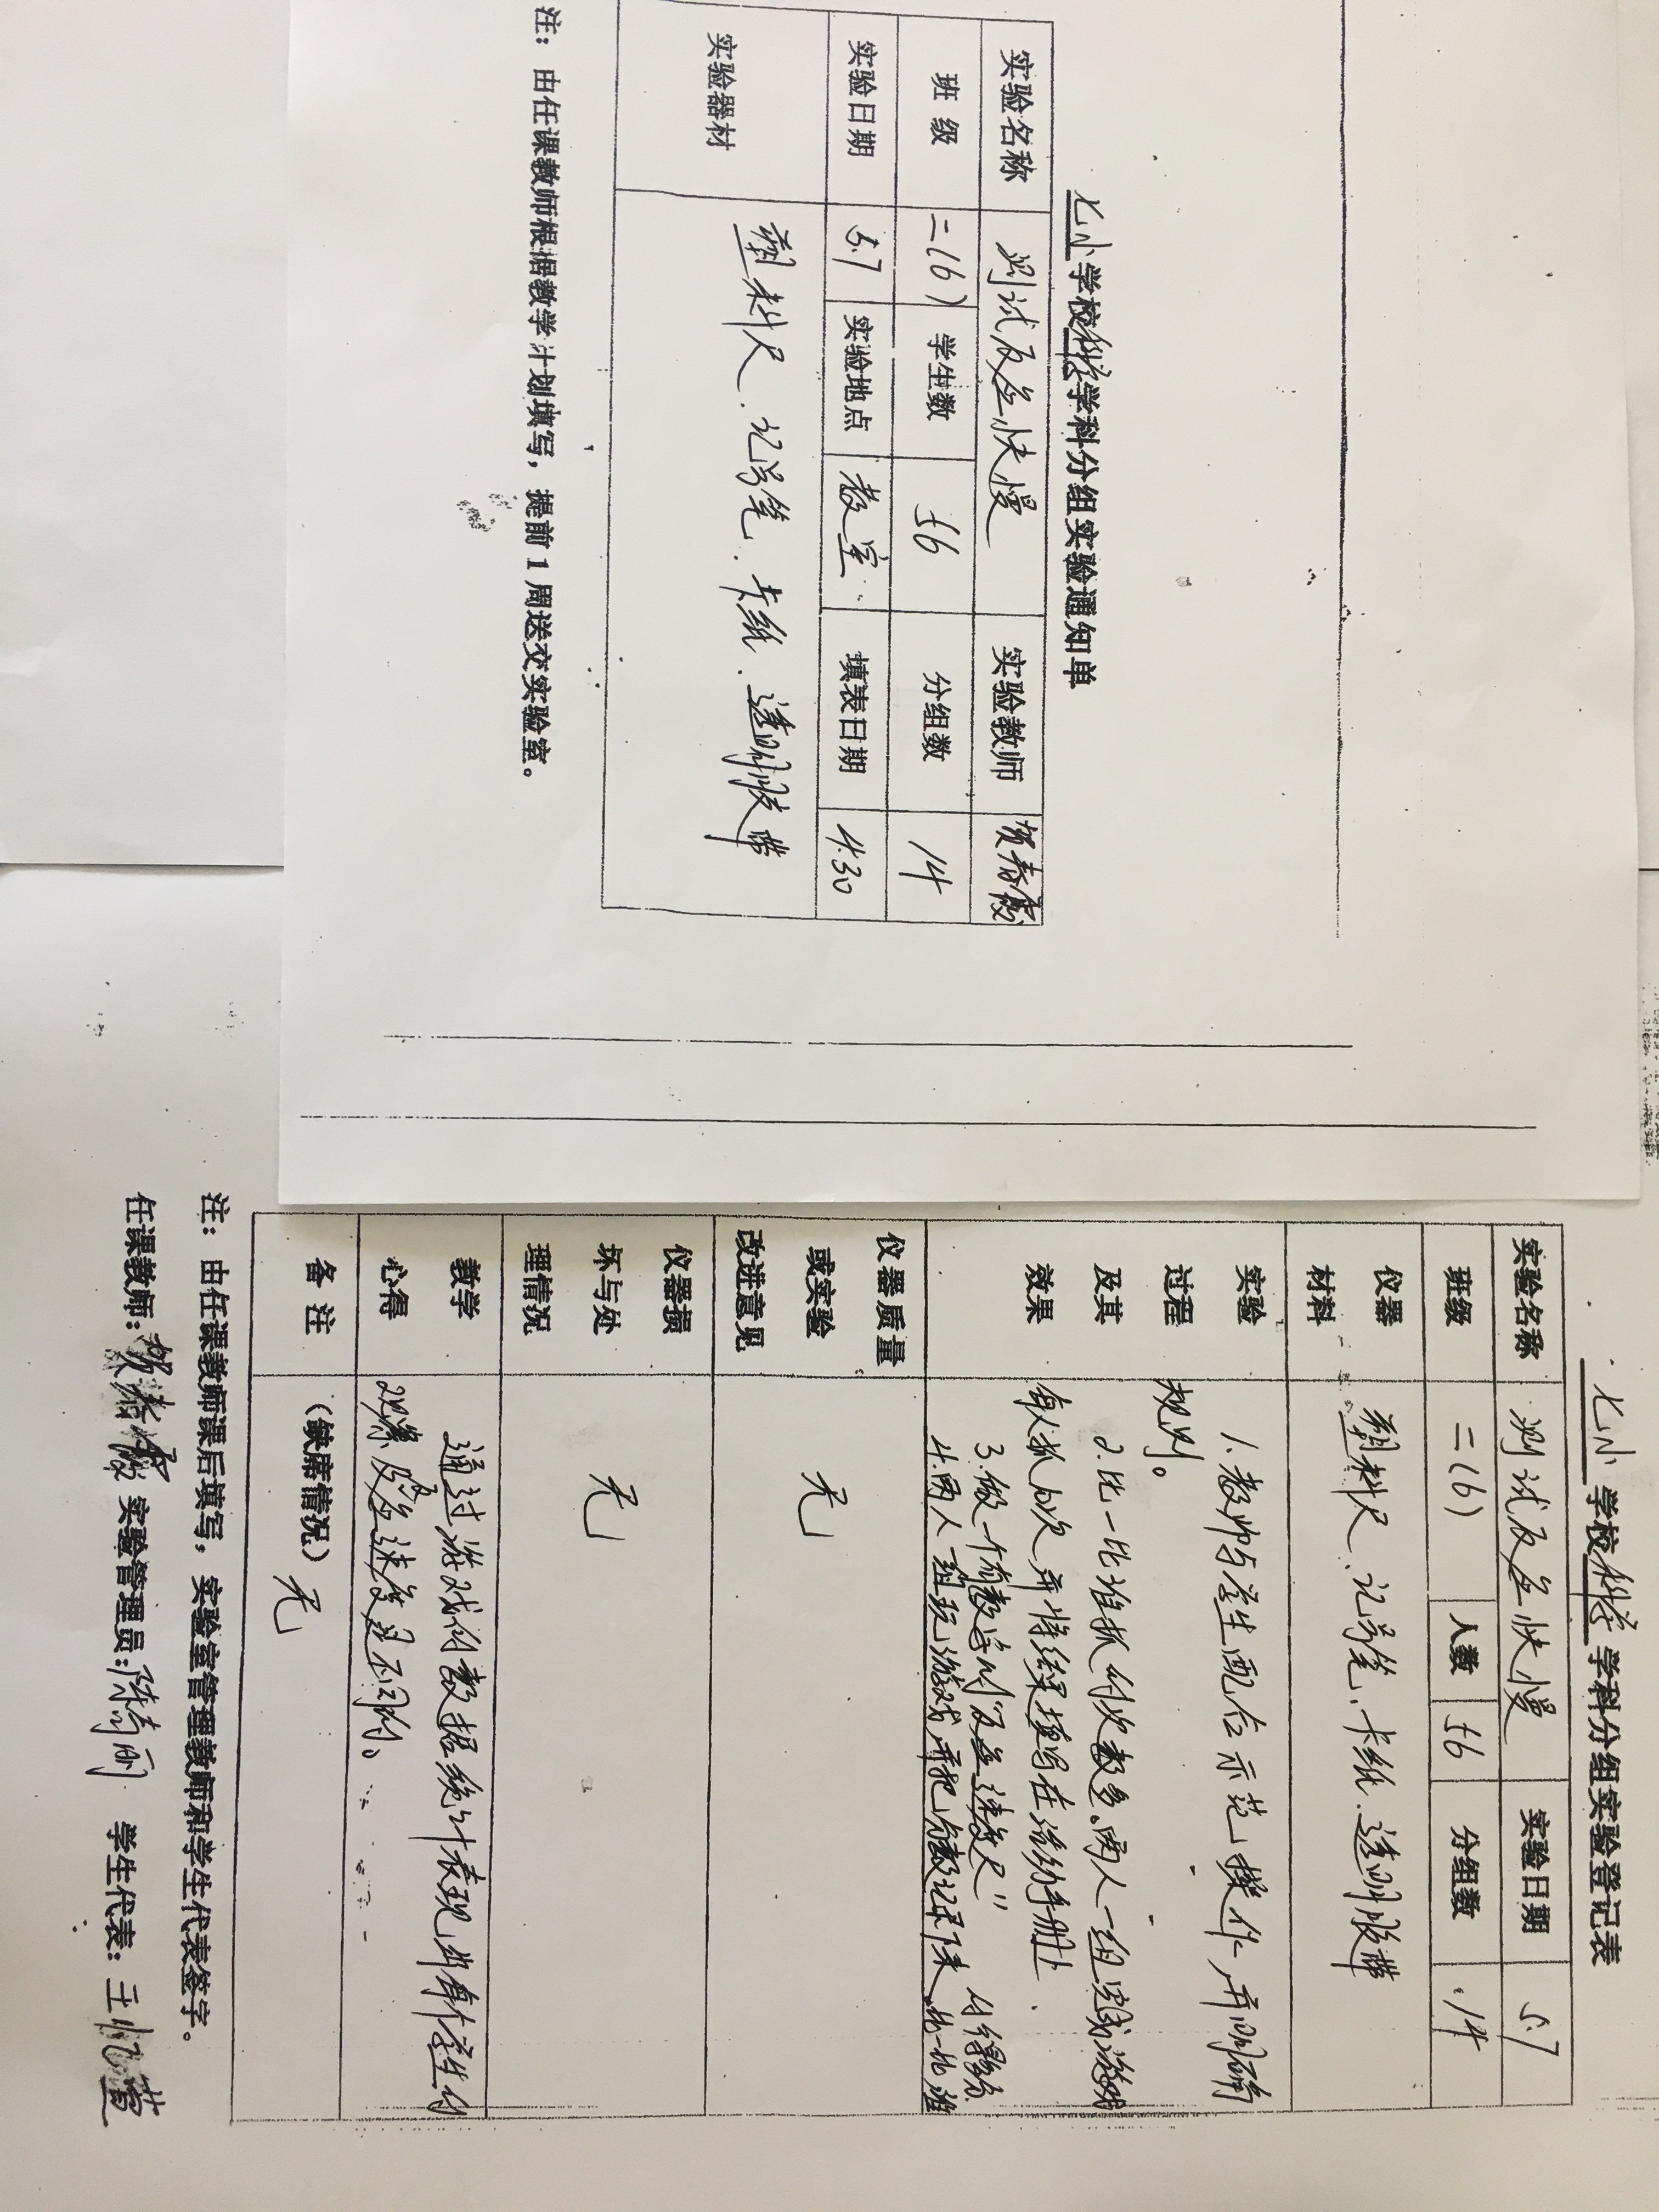 七小学校科学学科分组实验通知单
实验名称 测试反应快慢 实验教师 贺春霞
班级 二(6) 学生数 56 分组数 14
实验日期 5.7 实验地点 教室 填表日期 4.30
实验器材 塑料尺、记号笔、卡纸、透明胶带
注：由任课教师根据教学计划填写，提前1周送交实验室。
七小学校科学学科分组实验登记表
实验名称 测试反应快慢 实验日期 5.7
班级 二(6) 人数 56 分组数 14
仪器
材料
塑料尺、记号笔、卡纸、透明胶带
实验
过程
及其
效果
1.教师与学生配合示范操作,并明确
规则。
2.比一比谁抓的次数多。两人一组
每人抓10次,并将结果填写在活动手册上.
3.做一个有数字的"反应速度尺"
4.两人一组玩游戏,并把分数记录下来,比一比谁
的得数
仪器质量
或实验
改进意见
无
仪器损
坏与处
理情况
无
教学
心得
通过游戏的数据统计表现出每个学生的
观察及反应速度是不同的。
备注
(缺席情况) 无
注：由任课教师课后填写，实验室管理教师和学生代表签字。
任课教师:贺春霞 实验管理员:陈丽 学生代表：王忆萱